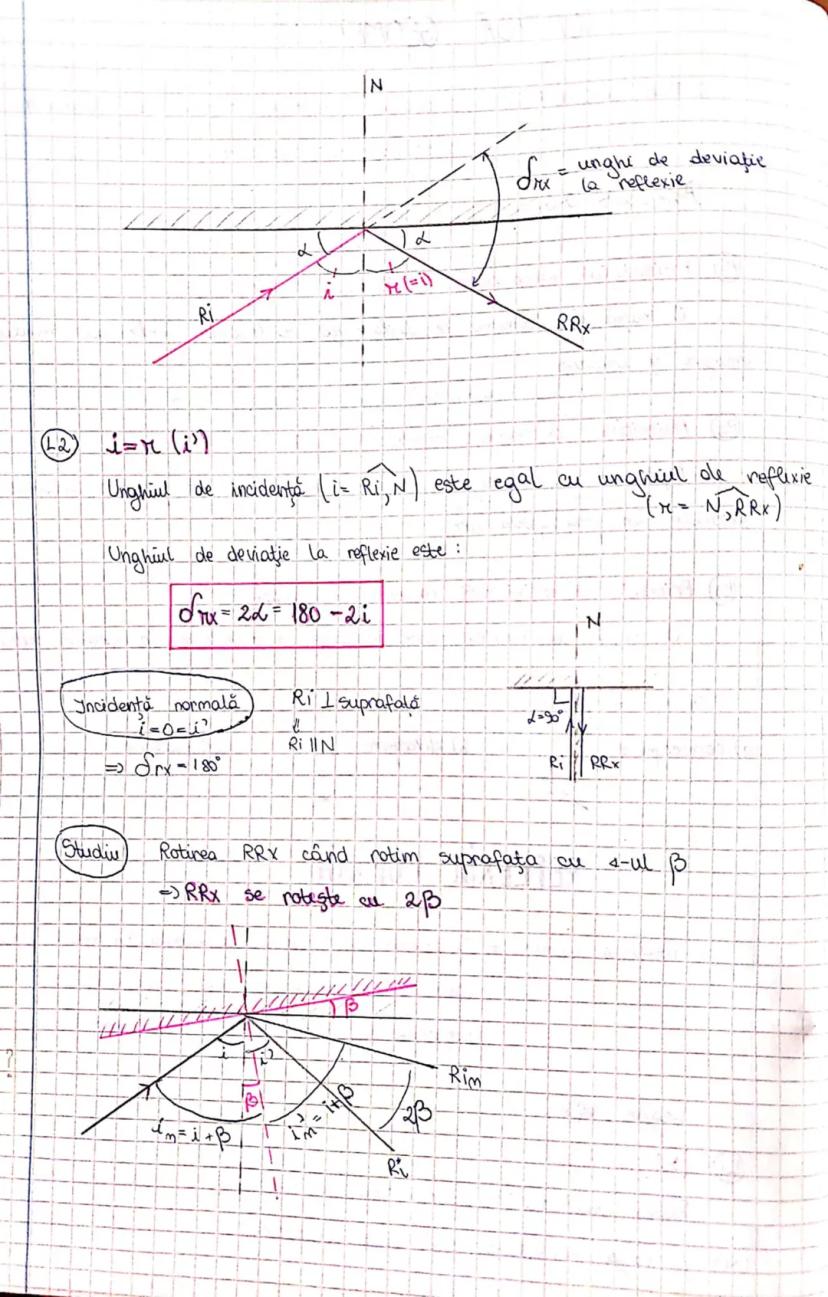 N
δrx = unghi de deviație
la reflexie
α
α
i
r(=i)
Ri
RRx
L2
i=r (i')
Unghiul de incidență (i= Ri,N) este egal cu unghiul de reflexie
(r = N,RRx)
Unghiul de deviație la reflexie este :
δrx = 2α = 180 - 2i
N
Incidență normală
i=0=i'
Ri ⊥ suprafață
⇓
Ri || N
=> δrx = 180°
α=90°
Ri
RRx
Studiu
Rotirea RRx când rotim suprafața cu ∢-ul β
=> RRx se rotește cu 2β
β
i
i'
β
Rin
in = i+β
i'n = i+β
2β
Ri
?